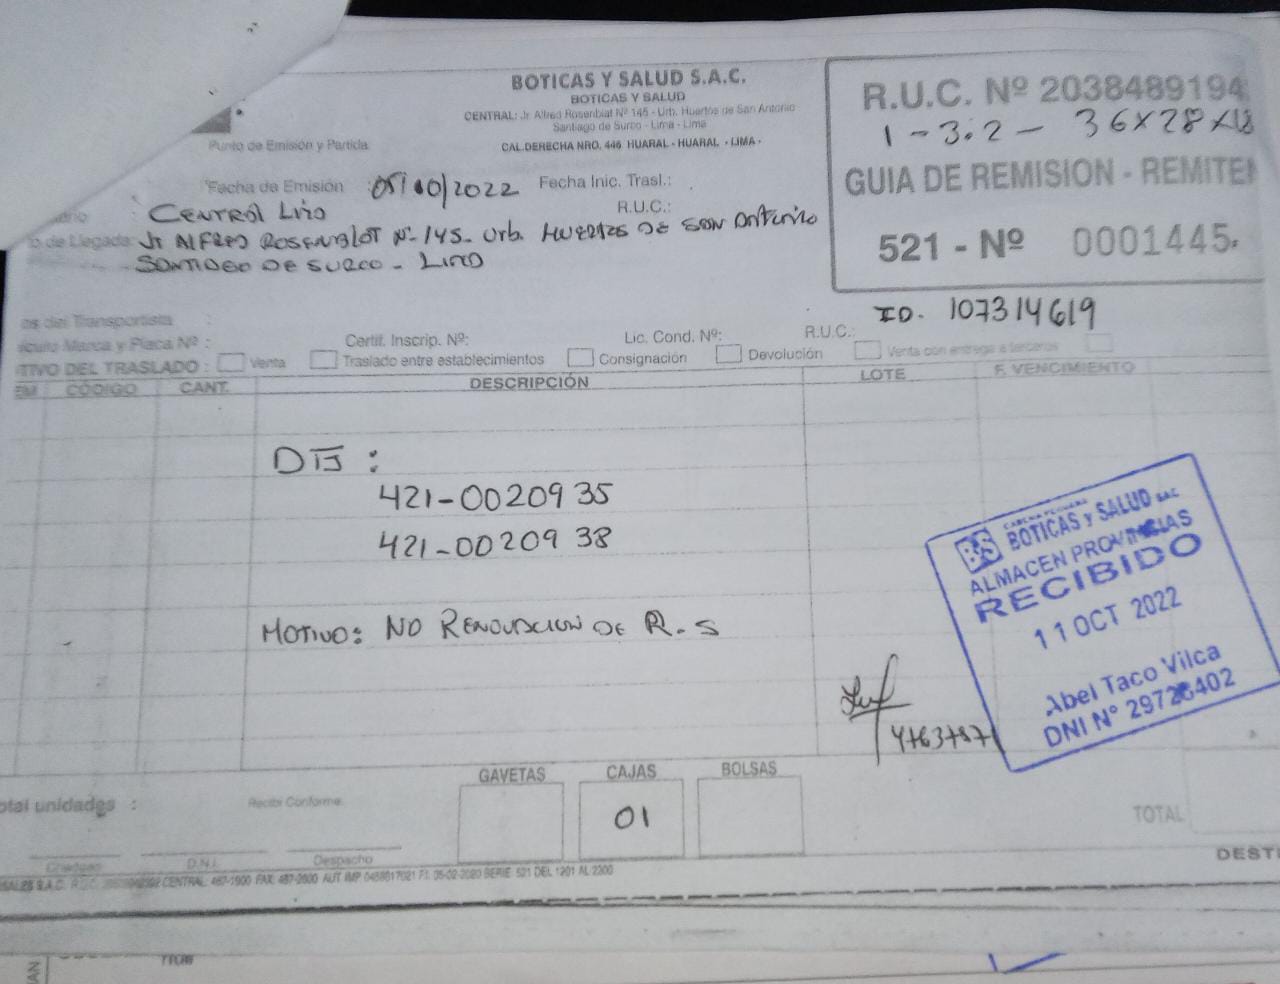 BOTICAS Y SALUD S.A.C.
BOTICAS Y SALUD
CENTRAL: Jr. Alfred Rosenblat Nº 145 - Urb. Huertos de San Antonio
Santiago de Surco - Lima - Lima
CAL.DERECHA NRO. 446 HUARAL - HUARAL - LIMA -
Punto de Emisión y Partida
R.U.C. Nº 2038489194
1 - 3.2 - 36x28x18
GUIA DE REMISION - REMITEN
521 - Nº 0001445
Fecha de Emisión : 05/10/2022 Fecha Inic. Trasl.:
: CENTRAL R.U.C.:
de Llegada: Jr ALFRED ROSENBLAT Nº 145- Urb. HUERTOS DE SAN ANTONIO
SANTIAGO DE SURCO - LIMA
ID. 107314619
os del Transportista :
Marca y Placa Nº : Certif. Inscrip. Nº: Lic. Cond. Nº: R.U.C.:
TIVO DEL TRASLADO : Venta Traslado entre establecimientos Consignación Devolución Venta con entrega a terceros
EM CÓDIGO CANT. DESCRIPCIÓN LOTE F. VENCIMIENTO
DTJ :
421-0020935
421-0020938
MOTIVO: NO RENOVACION DE R.S
BS BOTICAS y SALUD SAC
ALMACEN PROVINCIAS
RECIBIDO
11 OCT 2022
Abel Taco Vilca
DNI N° 29726402
GAVETAS CAJAS BOLSAS
otal unidades : Recibí Conforme: 01 TOTAL
D.N.I. Despacho
DESTI
SALES S.A.C. CENTRAL: 467-1900 FAX: 467-2600 AUT IMP 0458817021 F.I. 05-02-2020 SERIE: 521 DEL 1201 AL 2300